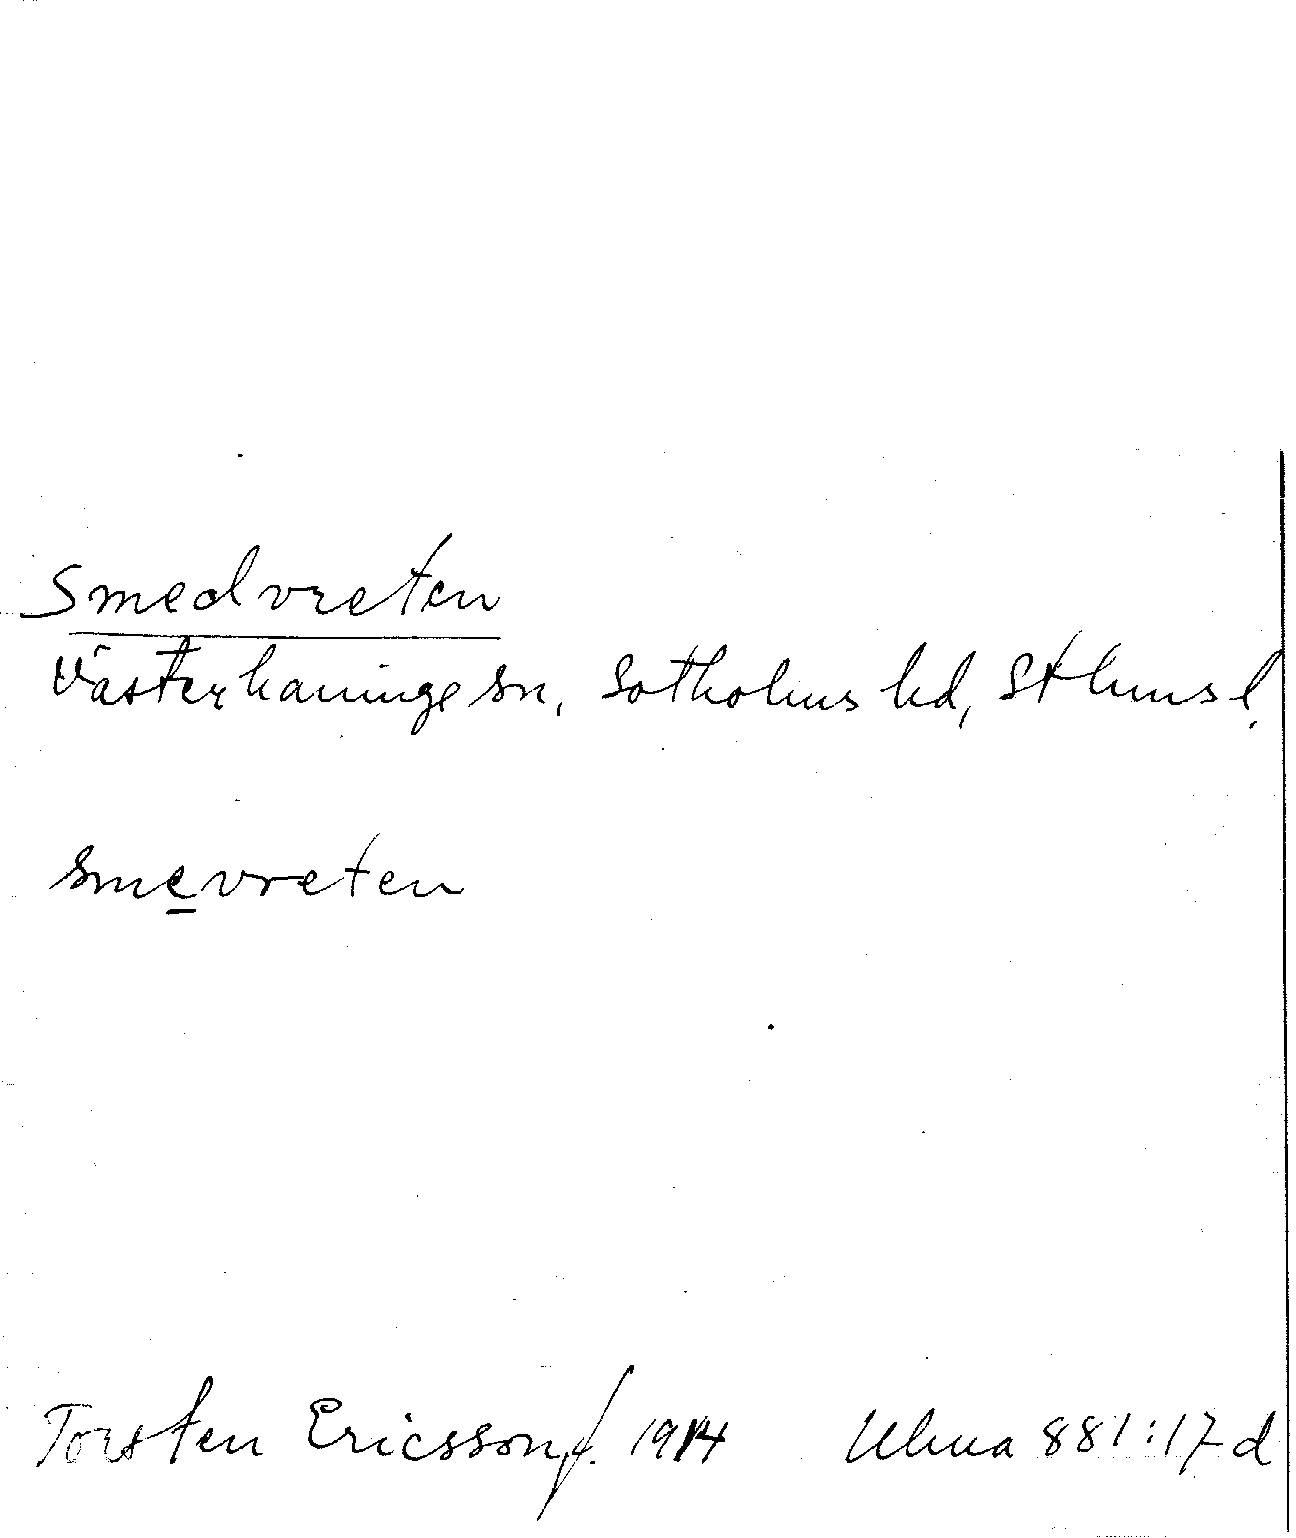 Smedvreten
Västerhaninge sn, Sotholms hd, Sthms l.
smevreten
Torsten Ericsson, f. 1914 Ulma 881:17 d